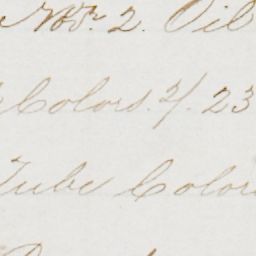 2. Oil
Colors. 2/. 23
Tube Colors